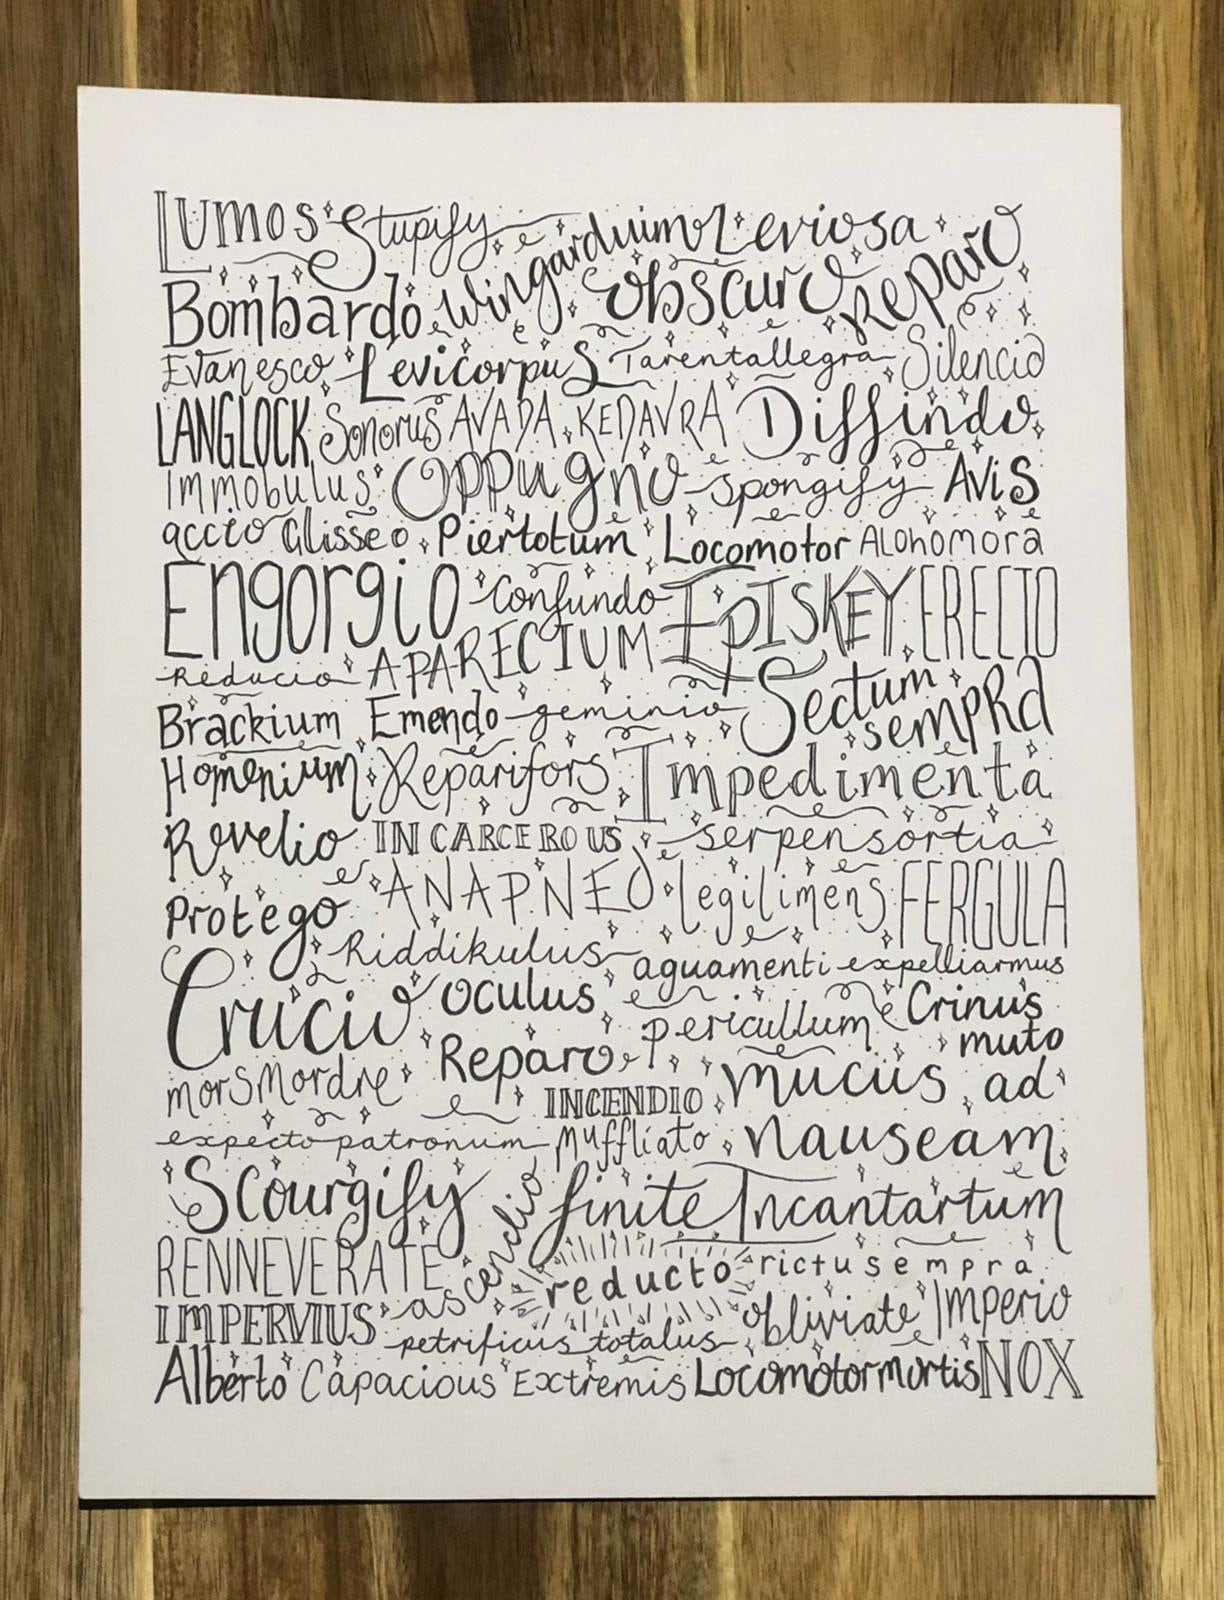 Lumos Stupify Wingarduim Leviosa
Bombardo Obscuro Reparo
Evanesco Levicorpus Tarentallegra Silencio
LANGLOCK Sonorus AVADA KEDAVRA Diffindo
Immobulus Oppugno spongify Avis
accio Glisseo Piertotum Locomotor Alohomora
Engorgio Confundo EpISKEY ERECTO
Reducio APARECIUM Sectum
sempRa
Brackium Emendo geminio
Homenium Reparifors Impedimenta
Revelio INCARCEROUS serpensortia
Protego ANAPNEO legilimens FERGULA
Riddikulus aguamenti expelliarmus
Crucio Oculus Pericullum Crinus
muto
morsmordre Reparo INCENDIO mucus ad
expecto patronum Muffliato nauseam
Scourgify finite Incantartum
RENNEVERATE ascendio reducto rictusempra
IMPERVIUS petrificus totalus obliviate Imperio
Alberto Capacious Extremis Locomotor mortis NOX